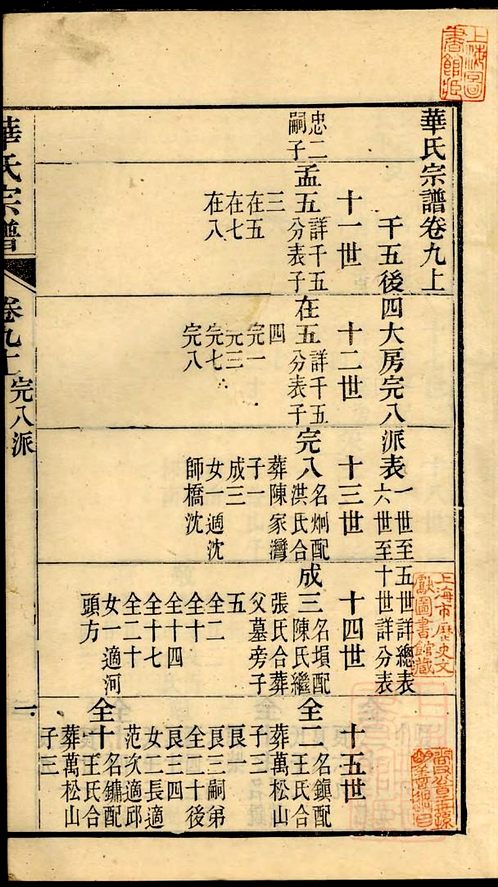 華氏宗譜卷九上
千五後四大房完八派表
一世至五世詳總表
六世至十世詳分表
十一世
十二世
十三世
十四世
十五世
忠二
嗣子
孟五
詳千五
分表子
三
在五
在七
在八
在五
詳千五
分表子
四
完一
元三
完七
完八
完八
名炯配
洪氏合
葬陳家灣
子一
成三
女一適沈
師橋沈
成三
名塤配
陳氏繼
張氏合葬
父墓旁子
五
全二
全十四
全十七
全二十
女一適河
頭方
全二
名鎮配
王氏合
葬萬松山
子三
良一
良三嗣弟
全二十後
良三四
女二長適
范次適邱
全十
名鏞配
王氏合
葬萬松山
子三
華氏宗譜
卷九上
完八派
一
上海圖書館藏
上海市歷史文獻圖書館藏